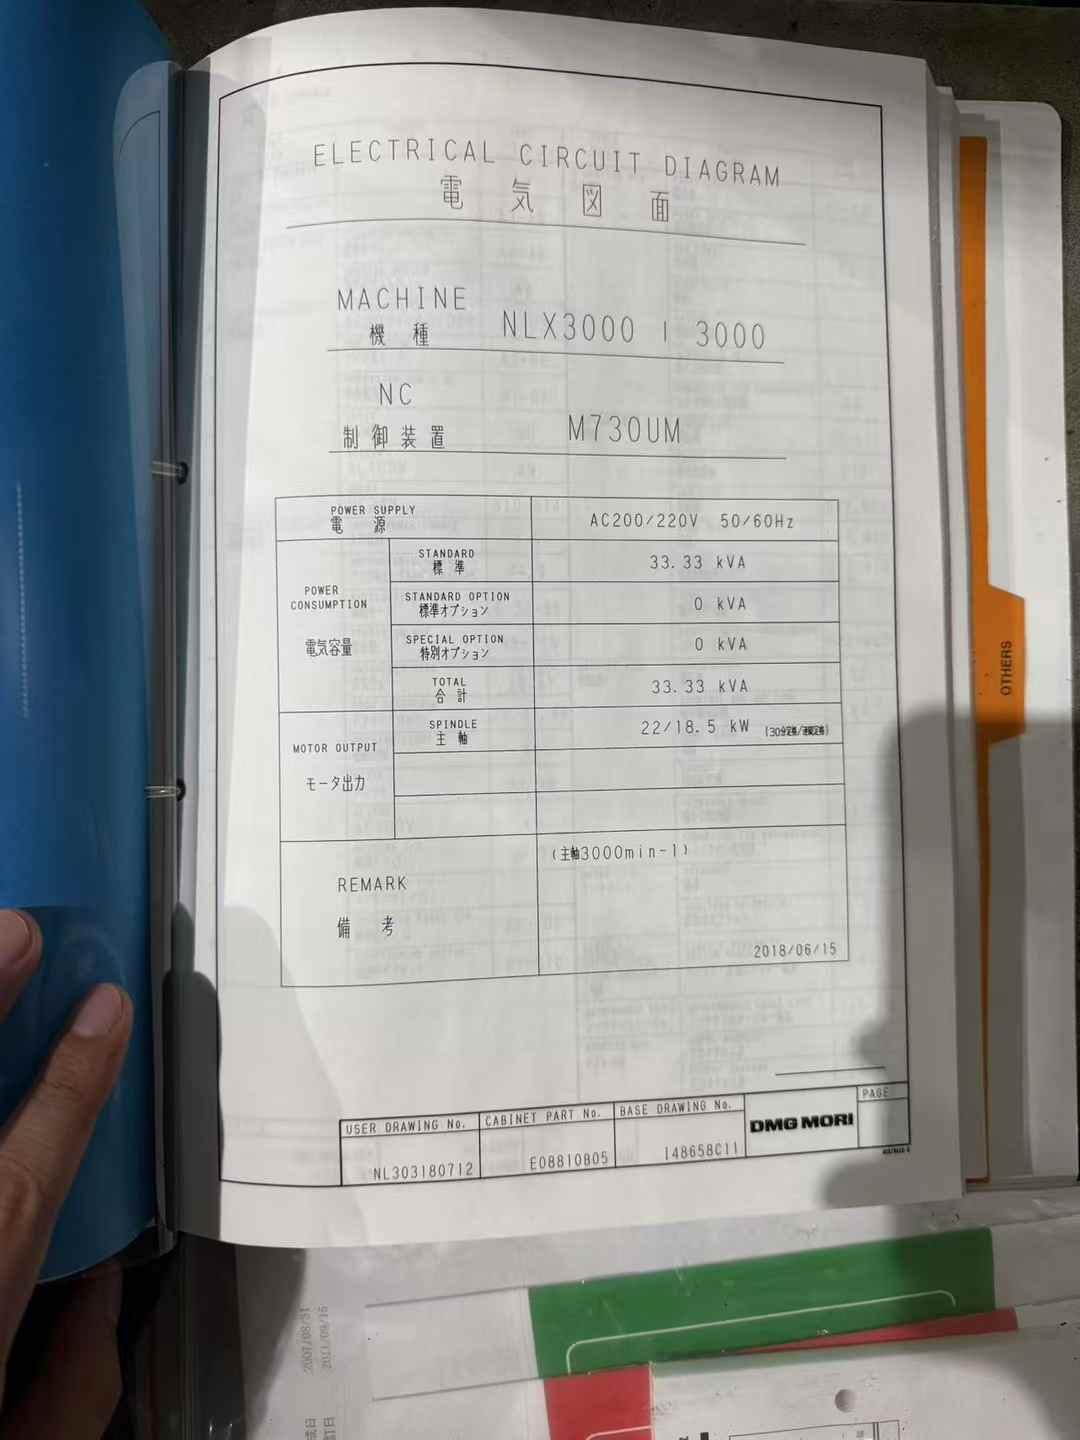 ELECTRICAL CIRCUIT DIAGRAM
電気図面
MACHINE
機種
NLX3000 | 3000
NC
制御装置
M730UM
POWER SUPPLY
電源
AC200/220V 50/60Hz
POWER CONSUMPTION
電気容量
STANDARD
標準
33.33 kVA
STANDARD OPTION
標準オプション
0 kVA
SPECIAL OPTION
特別オプション
0 kVA
TOTAL
合計
33.33 kVA
MOTOR OUTPUT
モータ出力
SPINDLE
主軸
22/18.5 kW (30分定格/連続定格)
REMARK
備考
(主軸3000min-1)
2018/06/15
USER DRAWING No.
NL303180712
CABINET PART No.
E08810B05
BASE DRAWING No.
I48658C11
DMG MORI
PAGE
OTHERS
2007/08/31
2011/09/15